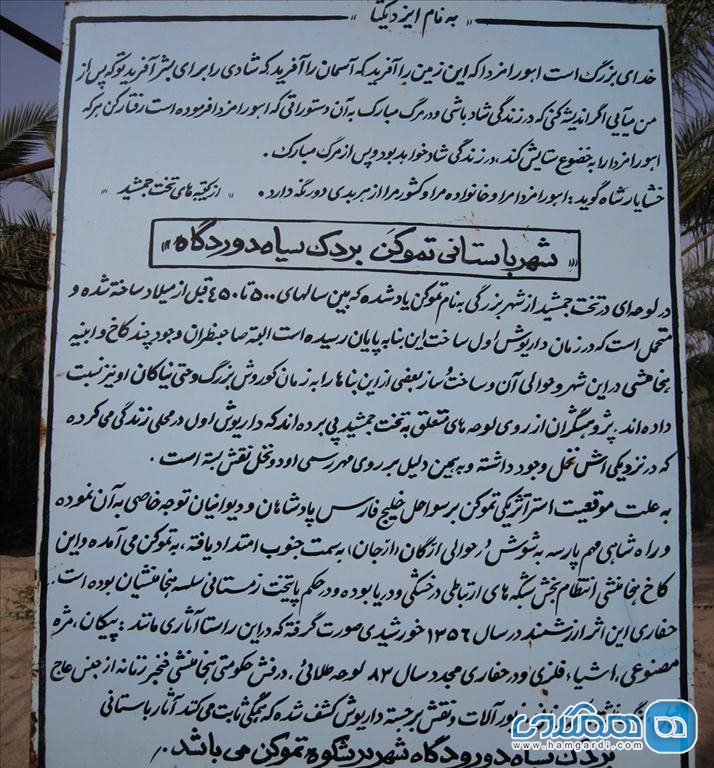 « به نام ایزد یکتا »
خدای بزرگ است اهورامزدا که این زمین را آفرید که آسمان را آفرید که شادی را برای بشر آفرید تو که پس از
من می‌آیی اگر اندیشه کنی که در زندگی شاد باشی و در مرگ مبارک به آن دستوراتی که اهورامزدا فرموده است رفتار کن هر که
اهورامزدا را به خضوع ستایش کند، در زندگی شاد خواهد بود و پس از مرگ مبارک.
خشایارشاه گوید: اهورامزدا مرا و خانواده مرا و کشور مرا از هر بدی دور نگه دارد. « از کتیبه های تخت جمشید »
« شهر باستانی تموکن بردک سیاه دوردگاه »
در لوحه‌ای در تخت جمشید از شهر بزرگی به نام تموکن یاد شده که بین سالهای ۵۰۰ تا ۴۵۰ قبل از میلاد ساخته شده و
محتمل است که در زمان داریوش اول ساخت این بنا به پایان رسیده است البته صاحبنظران وجود چند کاخ و ابنیه
هخامنشی در این شهر و حوالی آن و ساخت و ساز بعضی از این بناها را به زمان کوروش بزرگ و حتی نیاکان او نیز نسبت
داده‌اند. پژوهشگران از روی لوحه های متعلق به تخت جمشید پی برده‌اند که داریوش اول در محلی زندگی می‌کرده
که در نزدیکی اش نخل وجود داشته و به همین دلیل بر روی مهر رسمی او دو نخل نقش بسته است.
به علت موقعیت استراتژیکی تموکن بر سواحل خلیج فارس پادشاهان و دیوانیان توجه خاصی به آن نموده
و راه شاهی مهم پارسه به شوش در حوالی ارگان (ارّجان) به سمت جنوب امتداد یافته، به تموکن می آمده و این
کاخ هخامنشی انتظام بخش شبکه های ارتباطی در خشکی و دریا بوده و در حکم پایتخت زمستانی سلسه هخامنشیان بوده است.
حفاری این اثر ارزشمند در سال ۱۳۵۶ خورشیدی صورت گرفته که در این راستا آثاری مانند: پیکان، مژه
مصنوعی، اشیاء فلزی و در حفاری مجدد سال ۸۳ لوحه طلائی، درفش حکومتی هخامنشی خنجر زنانه از جنس عاج
زیورآلات و نقش برجسته داریوش کشف شده که همگی ثابت می کند آثار باستانی
بردک سیاه دورودگاه شهر پرشکوه تموکن می باشد.
همگردی
www.hamgardi.com